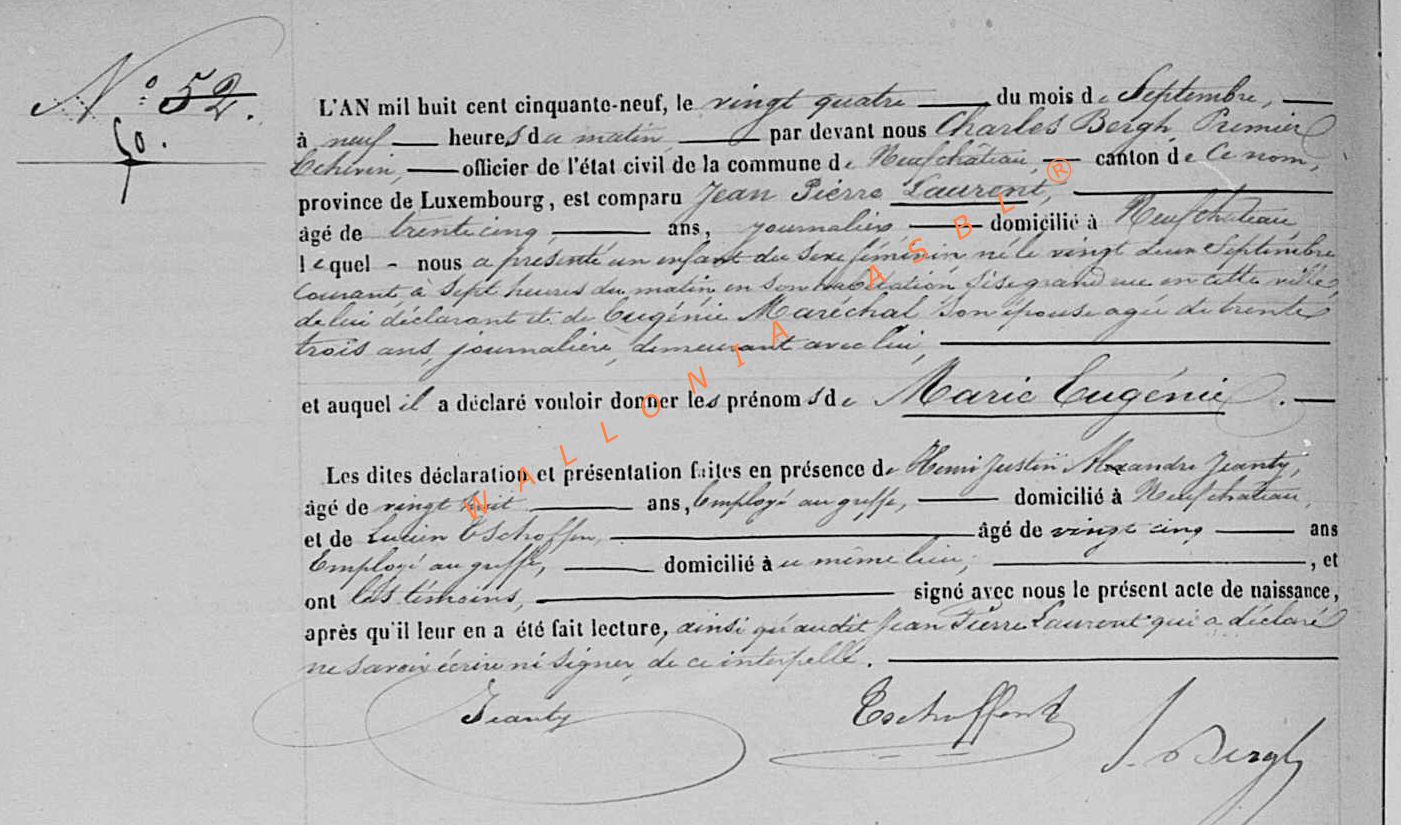 N° 52.
60.
L'AN mil huit cent cinquante-neuf, le vingt quatre du mois de Septembre,
à neuf heures du matin par devant nous Charles Bergh Premier
Echevin, officier de l'état civil de la commune de Neufchâteau, canton de ce nom,
province de Luxembourg, est comparu Jean Pierre Laurent,
âgé de trente cinq ans, journalier, domicilié à Neufchâteau,
lequel - nous a présenté un enfant du sexe féminin né le vingt deux Septembre
courant, à sept heures du matin en son habitation sise grand rue en cette ville,
de lui déclarant et de Eugénie Maréchal son épouse agée de trente
trois ans, journalière, demeurant avec lui,
et auquel il a déclaré vouloir donner les prénoms de Marie Eugénie.
Les dites déclaration et présentation faites en présence de Henri Justin Alexandre Jeanty,
âgé de vingt huit ans, Employé au greffe, domicilié à Neufchâteau
et de Lucien Tschoffen, âgé de vingt cinq ans
Employé au greffe, domicilié à même lieu, , et
ont les témoins, signé avec nous le présent acte de naissance,
après qu'il leur en a été fait lecture, ainsi qu'audit Jean Pierre Laurent qui a déclaré
ne savoir écrire ni signer, de ce interpellé.
Jeanty Tschoffen Bergh
WALLONIA ASBL ®